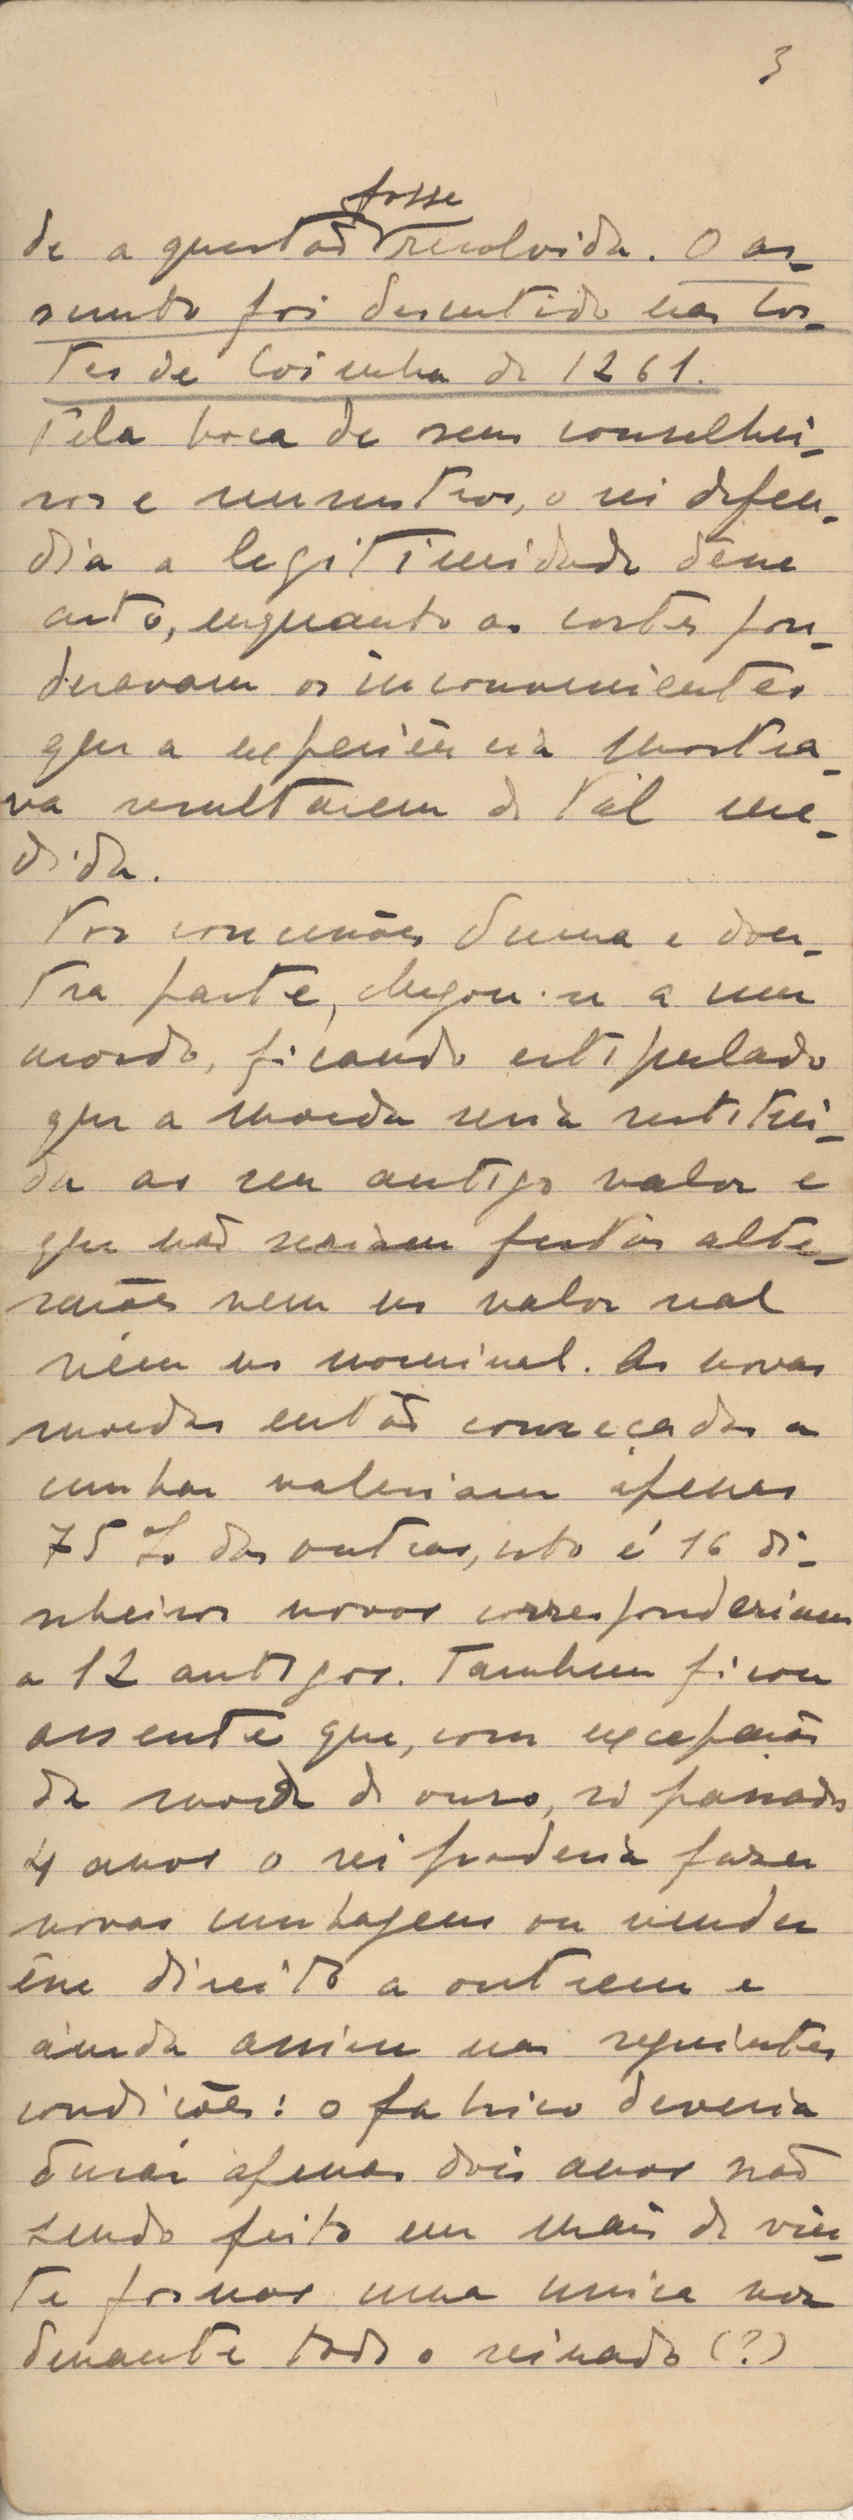 3
fosse
de a questão resolvida. O as-
sunto foi discutido nas Cor-
tes de Coimbra de 1261.
Pela boca de seus conselhei-
ros e ministros, o rei defen-
dia a legitimidade dêsse
acto, enquanto as cortes pon-
deravam os inconvenientes
que a experiência mostra-
va resultarem de tal me-
dida.
Por concessões duma e dou-
tra parte, chegou-se a um
acordo, ficando estipulado
que a moeda seria restitui-
da ao seu antigo valor e
que não seriam feitas alte-
rações nem no valor real
nem no nominal. As novas
moedas então começadas a
cunhar valeriam apenas
75 % das outras, isto é 16 di-
nheiros novos corresponderiam
a 12 antigos. Tambem ficou
assente que, com excepção
da moeda de ouro, só passados
4 anos o rei poderia fazer
novas cunhagens ou vender
êsse direito a outrem e
ainda assim nas seguintes
condições: o fabrico deveria
durar apenas dois anos não
sendo feito em mais de vin-
te fornos uma unica vez
durante todo o reinado (?)